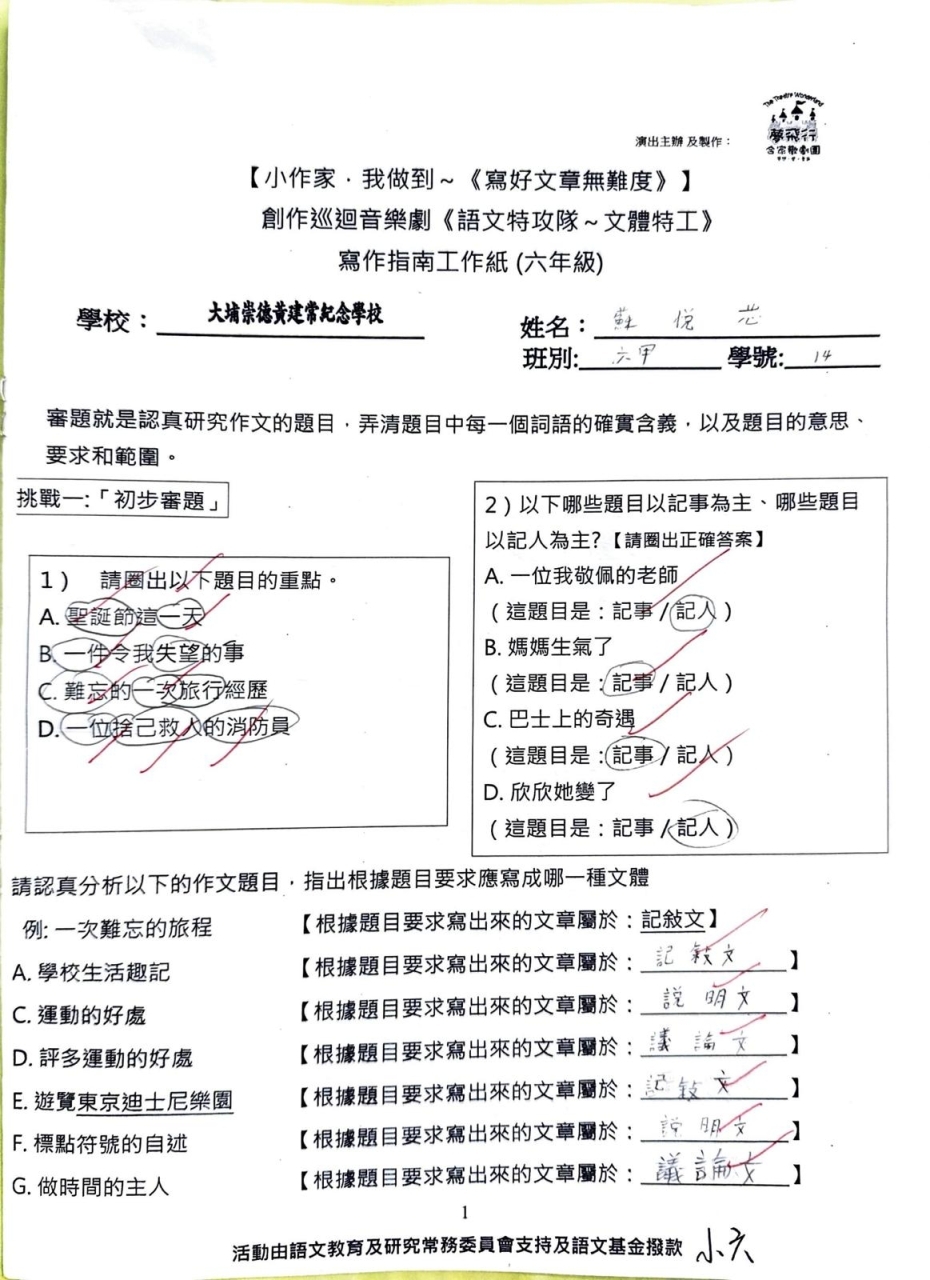 The Theatre Wonderland
夢飛行
合家歡劇團
演出主辦及製作：
【小作家．我做到～《寫好文章無難度》】
創作巡迴音樂劇《語文特攻隊～文體特工》
寫作指南工作紙 (六年級)
學校：大埔崇德黃建常紀念學校
姓名：蘇悅芯
班別:六甲 學號:14
審題就是認真研究作文的題目，弄清題目中每一個詞語的確實含義，以及題目的意思、
要求和範圍。
挑戰一:「初步審題」
1） 請圈出以下題目的重點。
A. 聖誕節這一天
B. 一件令我失望的事
C. 難忘的一次旅行經歷
D. 一位捨己救人的消防員
2）以下哪些題目以記事為主、哪些題目
以記人為主?【請圈出正確答案】
A. 一位我敬佩的老師
（這題目是：記事 / 記人）
B. 媽媽生氣了
（這題目是：記事 / 記人）
C. 巴士上的奇遇
（這題目是：記事 / 記人）
D. 欣欣她變了
（這題目是：記事 / 記人）
請認真分析以下的作文題目，指出根據題目要求應寫成哪一種文體
例: 一次難忘的旅程 【根據題目要求寫出來的文章屬於：記敍文】
A. 學校生活趣記 【根據題目要求寫出來的文章屬於：記敍文】
C. 運動的好處 【根據題目要求寫出來的文章屬於：説明文】
D. 評多運動的好處 【根據題目要求寫出來的文章屬於：議論文】
E. 遊覽東京迪士尼樂園 【根據題目要求寫出來的文章屬於：記敍文】
F. 標點符號的自述 【根據題目要求寫出來的文章屬於：説明文】
G. 做時間的主人 【根據題目要求寫出來的文章屬於：議論文】
1
活動由語文教育及研究常務委員會支持及語文基金撥款 小六